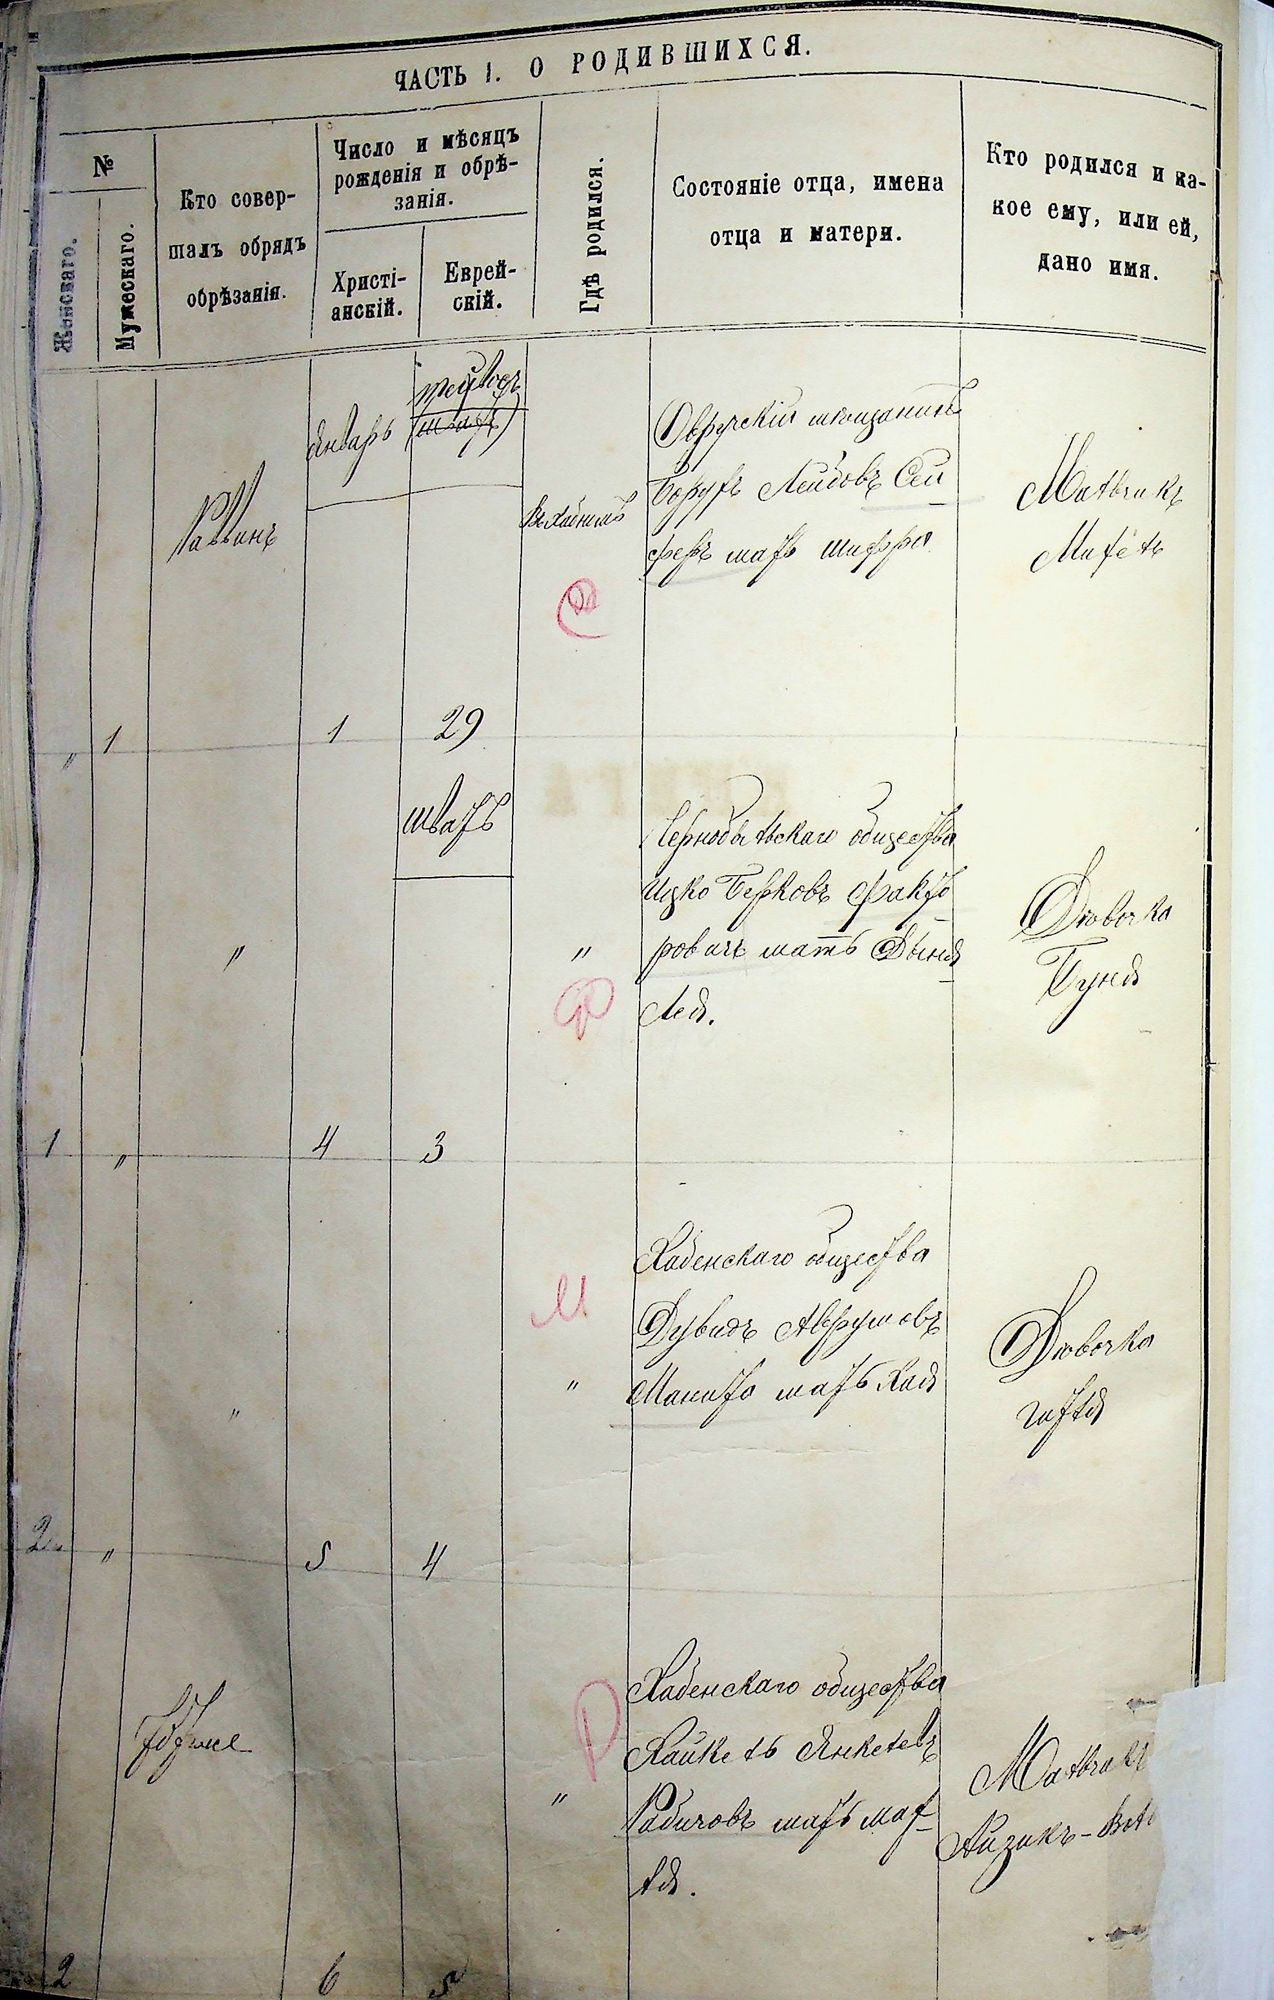 ЧАСТЬ I. О РОДИВШИХСЯ.
№
Женскаго.
Мужескаго.
Кто совер-
шалъ обрядъ
обрѣзанія.
Число и мѣсяцъ
рожденія и обрѣ-
занія.
Христі-
анскій.
Еврей-
скій.
Гдѣ родился.
Состояніе отца, имена
отца и матери.
Кто родился и ка-
кое ему, или ей,
дано имя.
Январь
Раввинъ
Овручскій мѣщанинъ
Борухъ Лейбовъ Сей
феръ мать Шифра
Мальчикъ
„ 1 1 29
Шватъ
„
„
Ф
Чернобыльскаго общества
Ицко Берковъ Факто
ровичъ мать Дыня
Лея.
Дѣвочка
Буня
1 „ 4 3
„
М
„
Хабенскаго общества
Дувидъ Аврумовъ
мать Хая
Дѣвочка
Гитля
2 „ 5 4
Р
„
Хабенскаго общества
Хайкель Янкелевъ
Рабичовъ мать мат
ля.
Мальчикъ
Айзикъ-
2 6 5